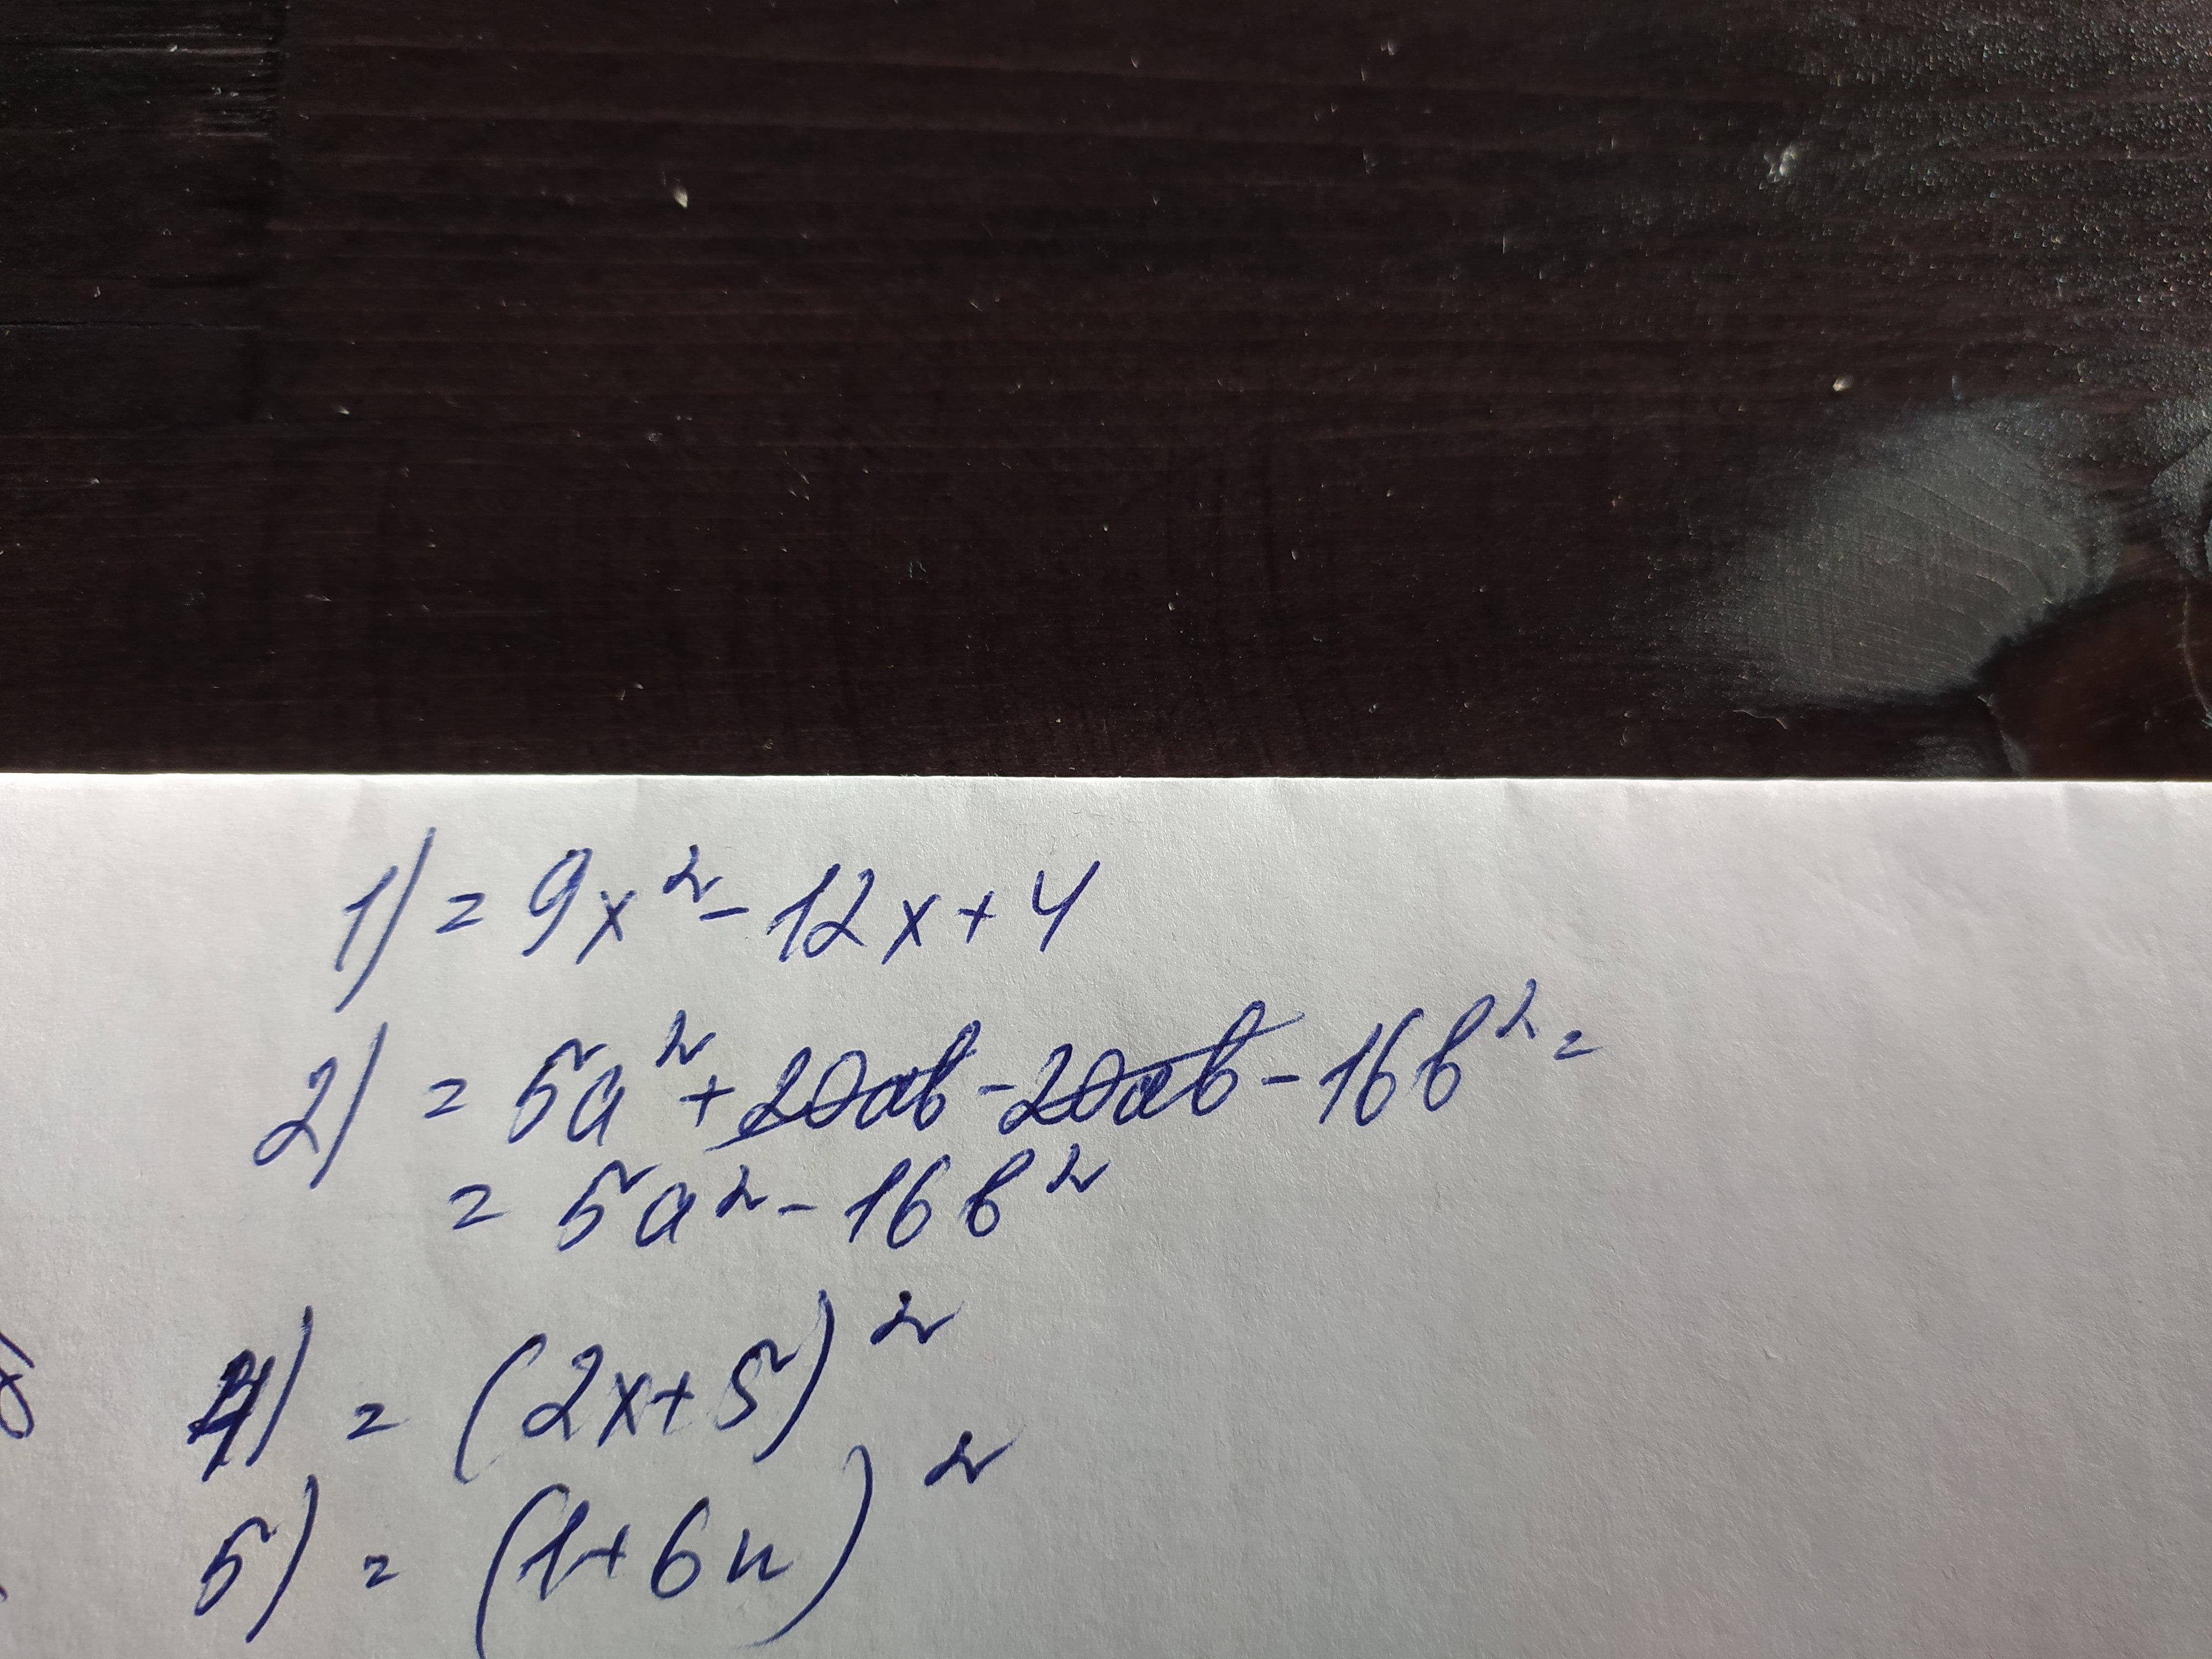 1) = 9x² - 12x + 4
2) = 5a² + 20ab - 20ab - 16b² =
= 5a² - 16b²
4) = (2x + 5)²
5) = (1 + 6n)²